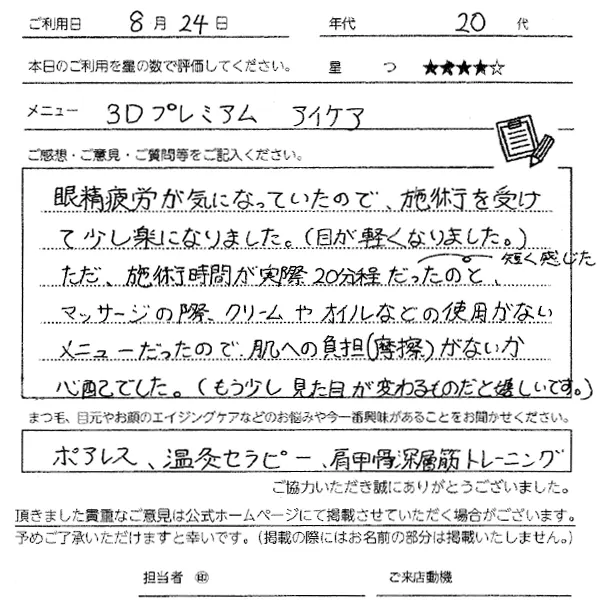 ご利用日 8月24日 年代 20代
本日のご利用を星の数で評価してください。 星 つ ★★★★☆
メニュー 3Dプレミアム アイケア
ご感想・ご意見・ご質問等をご記入ください。
眼精疲労が気になっていたので、施術を受け
て少し楽になりました。(目が軽くなりました。)
短く感じた
ただ、施術時間が実際20分程だったのと、
マッサージの際、クリームやオイルなどの使用がない
メニューだったので、肌への負担(摩擦)がないか
心配でした。(もう少し見た目が変わるものだと嬉しいです。)
まつ毛、目元やお顔のエイジングケアなどのお悩みや今一番興味があることをお聞かせください。
ポアレス、温灸セラピー、肩甲骨深層筋トレーニング
ご協力いただき誠にありがとうございました。
頂きました貴重なご意見は公式ホームページにて掲載させていただく場合がございます。
予めご了承いただけますと幸いです。(掲載の際にはお名前の部分は掲載いたしません。)
担当者 ㊞ ご来店動機